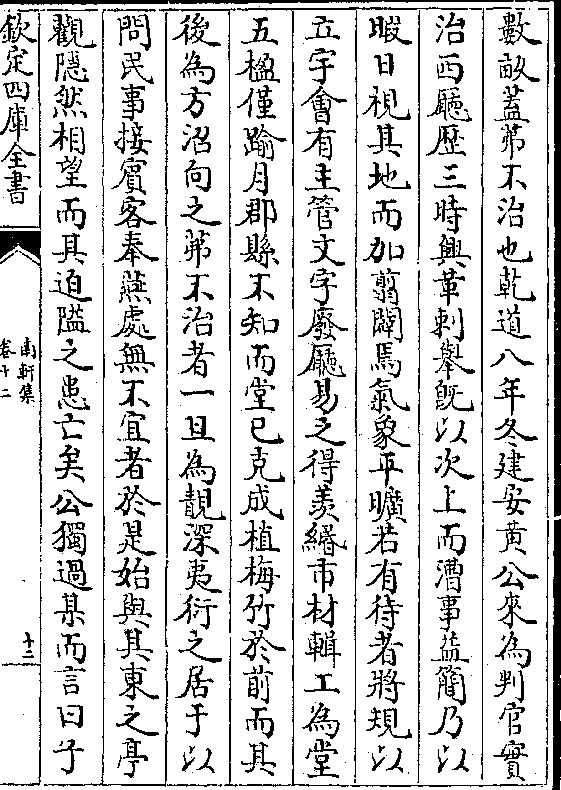 數畝蓋茀不治也乾道八年冬建安黄公來為判官實
治西廳歴三時興革刺舉既以次上而漕事益簡乃以
暇日視其地而加翦闢焉氣象平曠若有待者將規以
立字會有主管文字廢廳易之得羨緡市材輯工為堂
五楹僅踰月郡縣不知而堂已克成植梅竹於前而其
後為方沼向之茀不治者一旦為靚深夷衍之居于以
問民事接賓客奉燕處無不宜者於是始與其東之亭
觀隠然相望而其迫隘之患亡矣公獨過某而言曰子
欽定四庫全書
南軒集
卷十二
十三